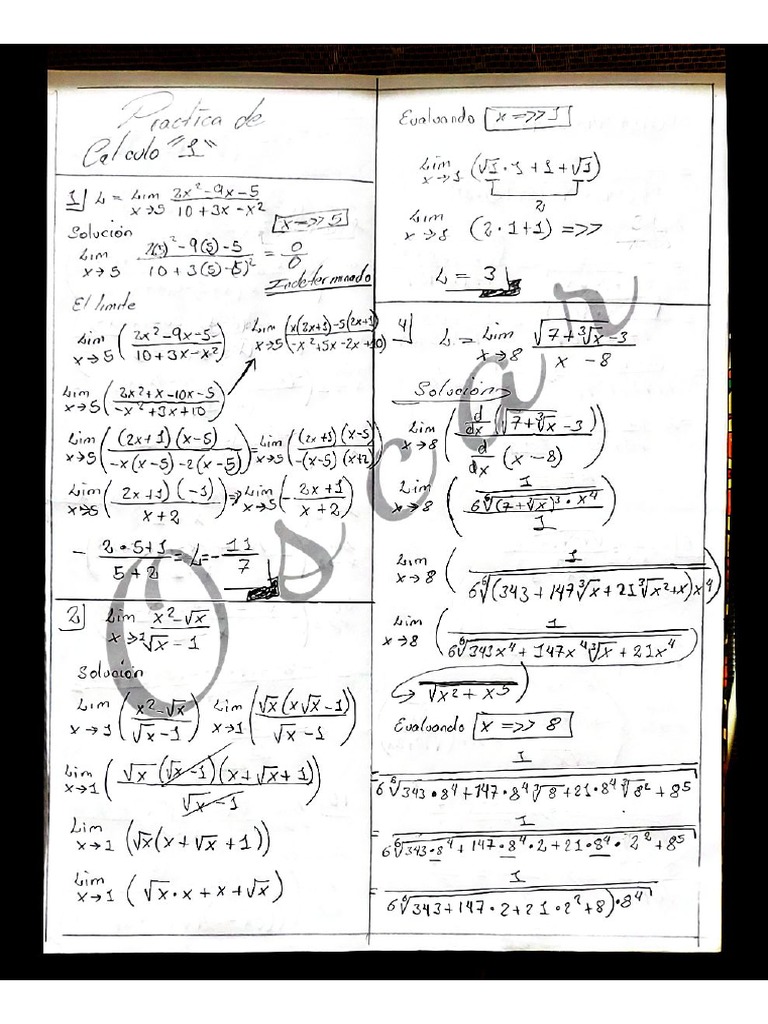 Practica de
Calculo "1"
1) L = Lim x→5 (2x² - 9x - 5)/(10 + 3x - x²)
Solución
x =>> 5
Lim x→5 (2(5)² - 9(5) - 5)/(10 + 3(5) - 5)² = 0/0
Indeterminado
El limite
Lim x→5 ((2x² - 9x - 5)/(10 + 3x - x²))
Lim x→5 ((2x² + x - 10x - 5)/(-x² + 3x + 10))
Lim x→5 ((x(2x+1) - 5(2x+1))/(-x² + 5x - 2x + 10))
Lim x→5 (((2x+1)(x-5))/(-x(x-5) - 2(x-5))) = Lim x→5 (((2x+1)(x-5))/(-(x-5)(x+2)))
Lim x→5 (((2x+1)(-1))/(x+2)) => Lim x→5 (-(2x+1)/(x+2))
- (2•5+1)/(5+2) = L = - 11/7
2) Lim x→1 (x² - √x)/(√x - 1)
Solución
Lim x→1 ((x² - √x)/(√x - 1)) Lim x→1 ((√x(x√x - 1))/(√x - 1))
Lim x→1 ((√x(√x - 1)(x + √x + 1))/(√x - 1))
Lim x→1 (√x(x + √x + 1))
Lim x→1 (√x•x + x + √x)
Evaluando x =>> 1
Lim x→1 (√1•1 + 1 + √1)
2
Lim x→8 (2•1+1) =>>
L = 3
4) L = Lim x→8 (√(7 + ³√x) - 3)/(x - 8)
Solución
Lim x→8 ((d/dx (√(7 + ³√x) - 3))/(d/dx (x - 8)))
Lim x→8 ((1/(6 ⁶√((7 + ³√x)³ • x⁴)))/1)
Lim x→8 (1/(6 ⁶√((343 + 147 ³√x + 21 ³√x² + x)x⁴)))
Lim x→8 (1/(6 ⁶√(343x⁴ + 147x⁴ ³√x + 21x⁴
√x² + x⁵))
Evaluando x =>> 8
1/(6 ⁶√(343•8⁴ + 147•8⁴ ³√8 + 21•8⁴ ³√8² + 8⁵))
= 1/(6 ⁶√(343•8⁴ + 147•8⁴•2 + 21•8⁴•2² + 8⁵))
= 1/(6 ⁶√(343 + 147•2 + 21•2² + 8)•8⁴)
Oscar